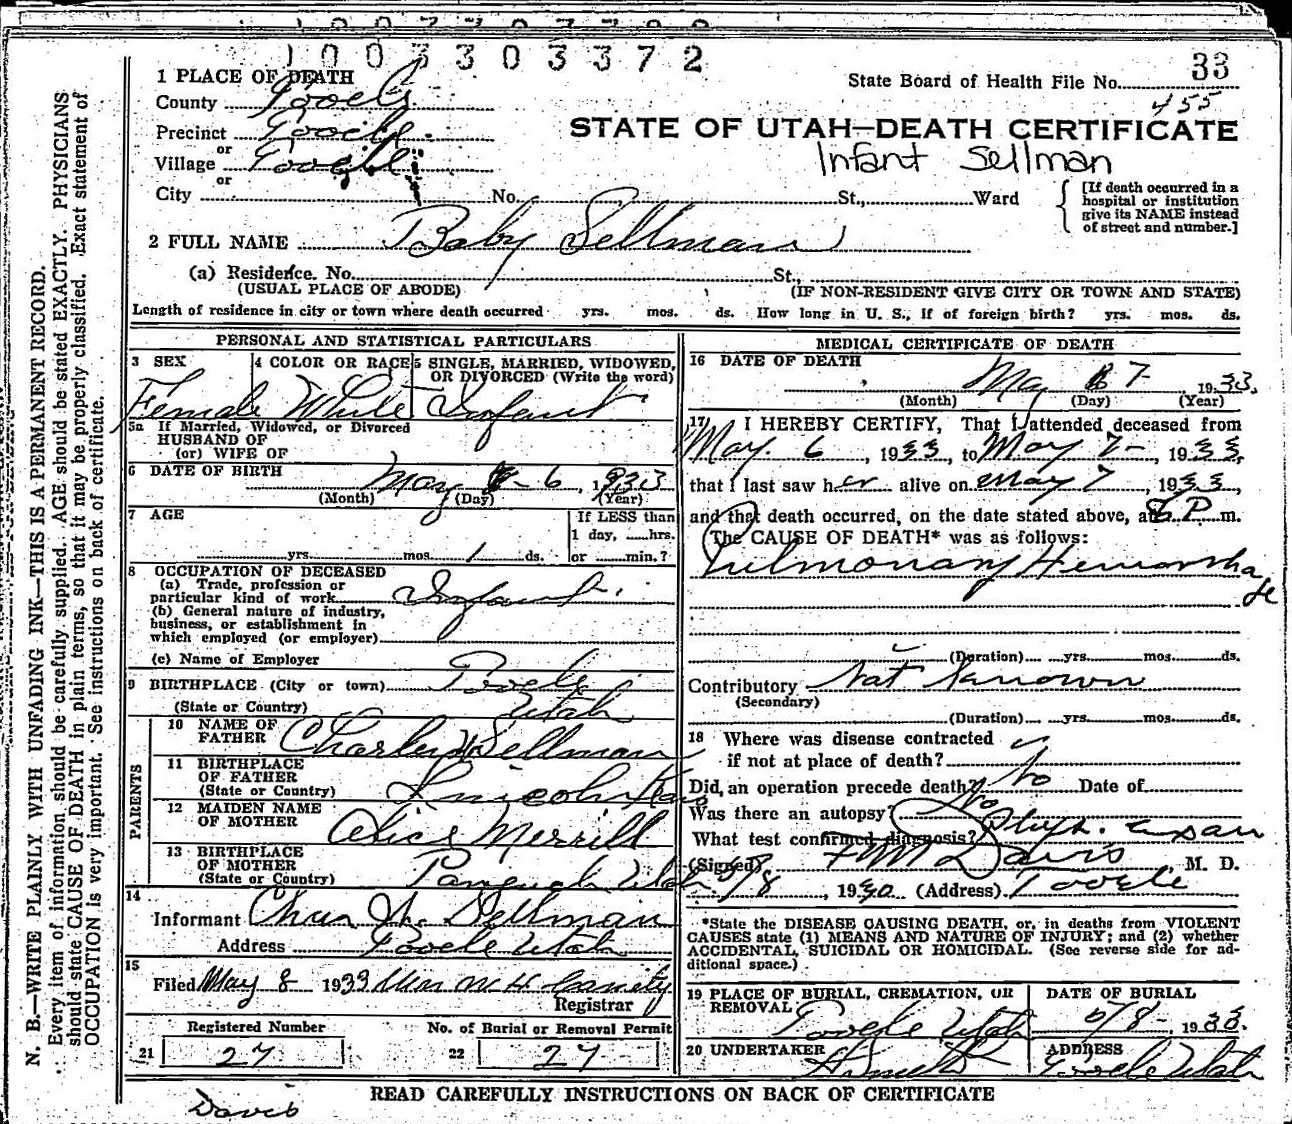 1003303372
33
State Board of Health File No.
455
1 PLACE OF DEATH
County Tooele
Precinct Tooele
or
Village Tooele
or
City No. St., Ward
STATE OF UTAH—DEATH CERTIFICATE
Infant Sellman
[If death occurred in a hospital or institution give its NAME instead of street and number.]
2 FULL NAME Baby Sellman
(a) Residence. No. St.,
(USUAL PLACE OF ABODE) (IF NON-RESIDENT GIVE CITY OR TOWN AND STATE)
Length of residence in city or town where death occurred yrs. mos. ds. How long in U. S., if of foreign birth? yrs. mos. ds.
N. B.—WRITE PLAINLY WITH UNFADING INK—THIS IS A PERMANENT RECORD.
Every item of information should be carefully supplied. AGE should be stated EXACTLY. PHYSICIANS
should state CAUSE OF DEATH in plain terms, so that it may be properly classified. Exact statement of
OCCUPATION is very important. See instructions on back of certificate.
PERSONAL AND STATISTICAL PARTICULARS
3 SEX 4 COLOR OR RACE 5 SINGLE, MARRIED, WIDOWED,
OR DIVORCED (Write the word)
Female White Infant
5a If Married, Widowed, or Divorced
HUSBAND OF
(or) WIFE OF
6 DATE OF BIRTH May 6, 1933
(Month) (Day) (Year)
7 AGE If LESS than
1 day, hrs.
yrs. mos. 1 ds. or min.?
8 OCCUPATION OF DECEASED
(a) Trade, profession or
particular kind of work Infant
(b) General nature of industry,
business, or establishment in
which employed (or employer)
(c) Name of Employer
9 BIRTHPLACE (City or town) Tooele
(State or Country) Utah
PARENTS
10 NAME OF
FATHER Charley W Sellman
11 BIRTHPLACE
OF FATHER
(State or Country) Lincoln Kans
12 MAIDEN NAME
OF MOTHER Alice Merrill
13 BIRTHPLACE
OF MOTHER
(State or Country) Panguich Utah
14
Informant Chas W. Sellman
Address Tooele Utah
15
Filed May 8 1933 Mrs W H Cassity
Registrar
Registered Number No. of Burial or Removal Permit
21 27 22 27
MEDICAL CERTIFICATE OF DEATH
16 DATE OF DEATH
May 7 1933.
(Month) (Day) (Year)
17 I HEREBY CERTIFY, That I attended deceased from
May. 6, 1933, to May 7-, 1933,
that I last saw her alive on May 7, 1933,
and that death occurred, on the date stated above, at 8 P m.
The CAUSE OF DEATH* was as follows:
Pulmonary Hemorrhage
(Duration) yrs. mos. ds.
Contributory Not Known
(Secondary)
(Duration) yrs. mos. ds.
18 Where was disease contracted
if not at place of death?
Did an operation precede death? No Date of
Was there an autopsy? No
What test confirmed diagnosis? Phys. exam
(Signed) F M Davis M. D.
5/8, 1930 (Address) Tooele
*State the DISEASE CAUSING DEATH, or, in deaths from VIOLENT
CAUSES state (1) MEANS AND NATURE OF INJURY; and (2) whether
ACCIDENTAL, SUICIDAL OR HOMICIDAL. (See reverse side for ad-
ditional space.)
19 PLACE OF BURIAL, CREMATION, OR
REMOVAL Tooele Utah
DATE OF BURIAL
5/8 1933.
20 UNDERTAKER
ADDRESS
Tooele Utah
READ CAREFULLY INSTRUCTIONS ON BACK OF CERTIFICATE
Davis